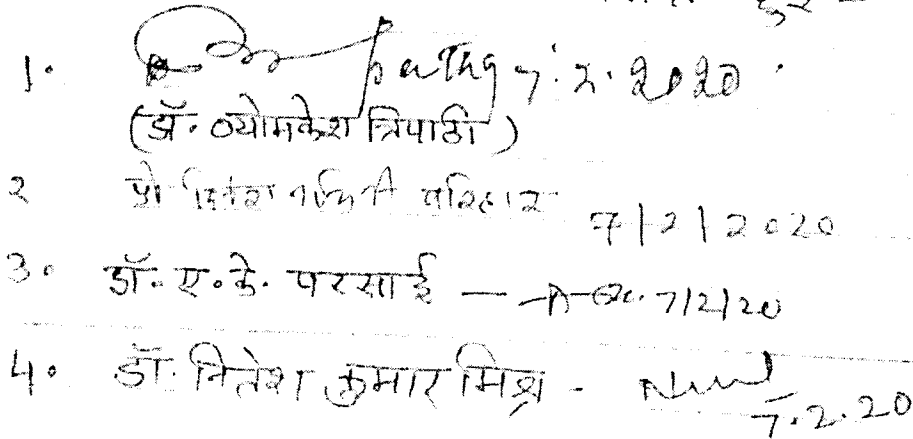 1. 7.2.2020.
(डॉ. व्योमकेश त्रिपाठी)
2 प्रो दिनेश नंदिनी परिहार 7/2/2020
3. डॉ. ए. के. परसाई — 7/2/20
4. डॉ. नितेश कुमार मिश्र - 7.2.20